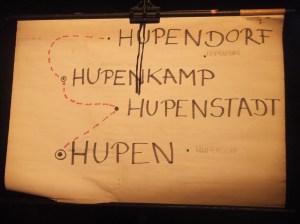 HUPENDORF
HUPENKAMP
HUPENSTADT
HUPEN